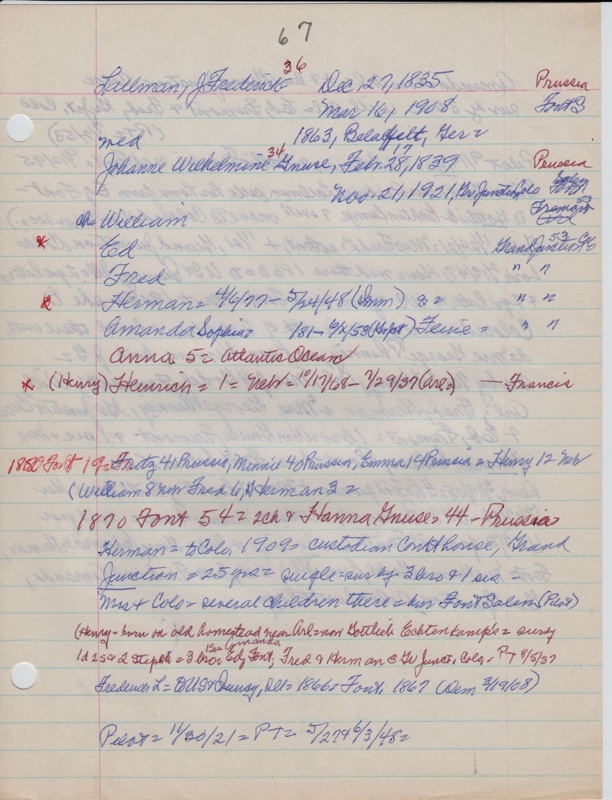 67
36
Lallman, J Frederick Dec 27, 1835 Prussia
Mar 16, 1908 Font 3
med 1863, Ger =
34 17
Johanne Wilhelmine Gnuse, Febr. 28, 1839 Prussia
Nov. 21, 1921, Gr Junction Colo
ch= William Fremont
* Ed Grand Junction 53 Co
Fred " "
* Herman = 4/6/77 - 5/24/48 (Imm) = " "
Amanda Sophia = (Hpt) = " "
Anna 5 = Atlantic Ocean
* (Henry) Heinrich = 1 = Neb = 10/17/68 - 7/29/37 (Arl=) — Francis
1880 Font 19 = Fritz 41 Prussia, Minnie 40 Prussia, Emma 14 Prussia = Henry 12 Neb
(William 8 Neb Fred 6, Herman 3 =
1870 Font 54 = 2ch & Hanna Gnuse = 44 - Prussia
Herman = to Colo. 1909 = custodian Courthouse, Grand
Junction = 25 yrs = single = sur by 3 bro & 1 sis =
Mrs & Colo = several children there = bur Font Salem (Pilot)
(Henry = born on old homestead near Arl = Gottlieb Echtenkamp's = surv
1 sis Amanda
1d 2s & 2 steps = 3 bros Ed, Font, Fred & Herman @ Gr Junct. Colo. = PT 8/5/37
Frederick L = = 1866 = Font. 1867 (Dem 3/19/08)
Pilot = 11/30/21 = PT = 5/27 & 6/3/48 =